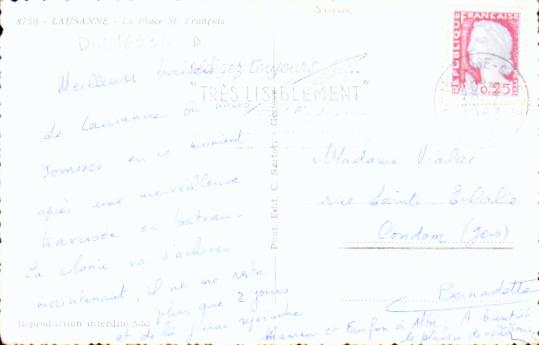 8758 - LAUSANNE - La Place St. François
Suisse
Meilleurs baisers
de Lausanne où nous
sommes en ce moment
après une merveilleuse
traversée en bateau.
La colonie va s'achever
maintenant, il ne me reste
plus que 2 jours
et de là j'irai rejoindre
Maman et Fanfan à Albi. A bientôt
le plaisir de vous
Bernadette
Rédigez toujours
"TRÈS LISIBLEMENT"
RÉPUBLIQUE FRANÇAISE
0,25
Phot. Edit. C. Sartori - Genève
Madame Vialas
rue Sainte Eulalie
Condom (Gers)
Reproduction interdite